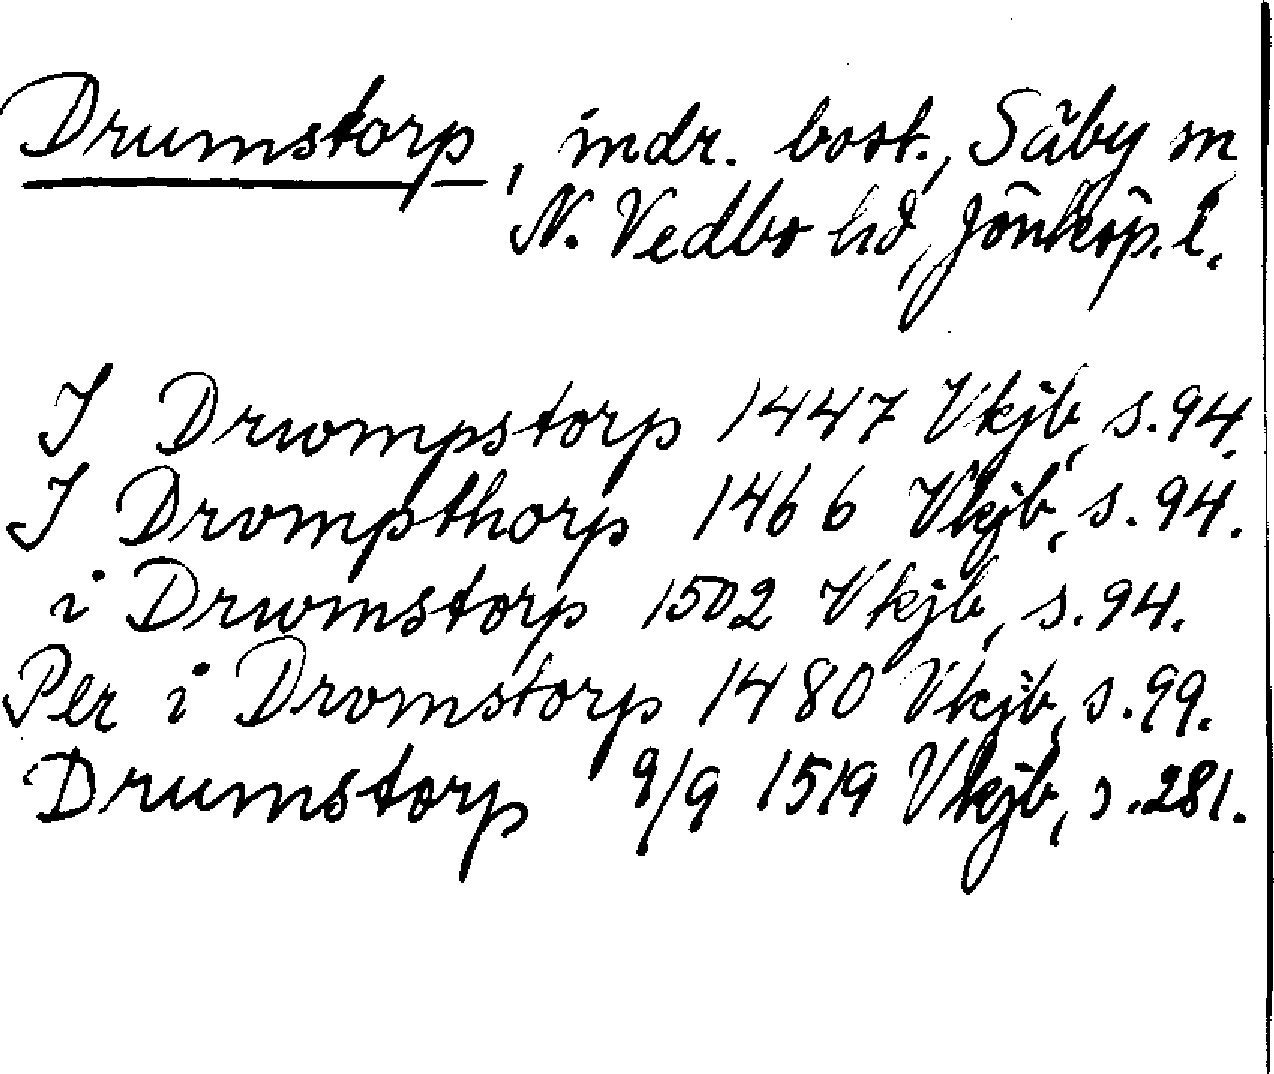 Drumstorp, indr. bost., Säby sn
N. Vedbo hd, Jönköp. l.
I Drwmpstorp 1447 Vkjb, s. 94.
I Drompthorp 1466 Vkjb, s. 94.
i Drwmstorp 1502 Vkjb, s. 94.
Per i Dromstorp 1480 Vkjb, s. 99.
Drumstorp 9/9 1519 Vkjb, s. 281.